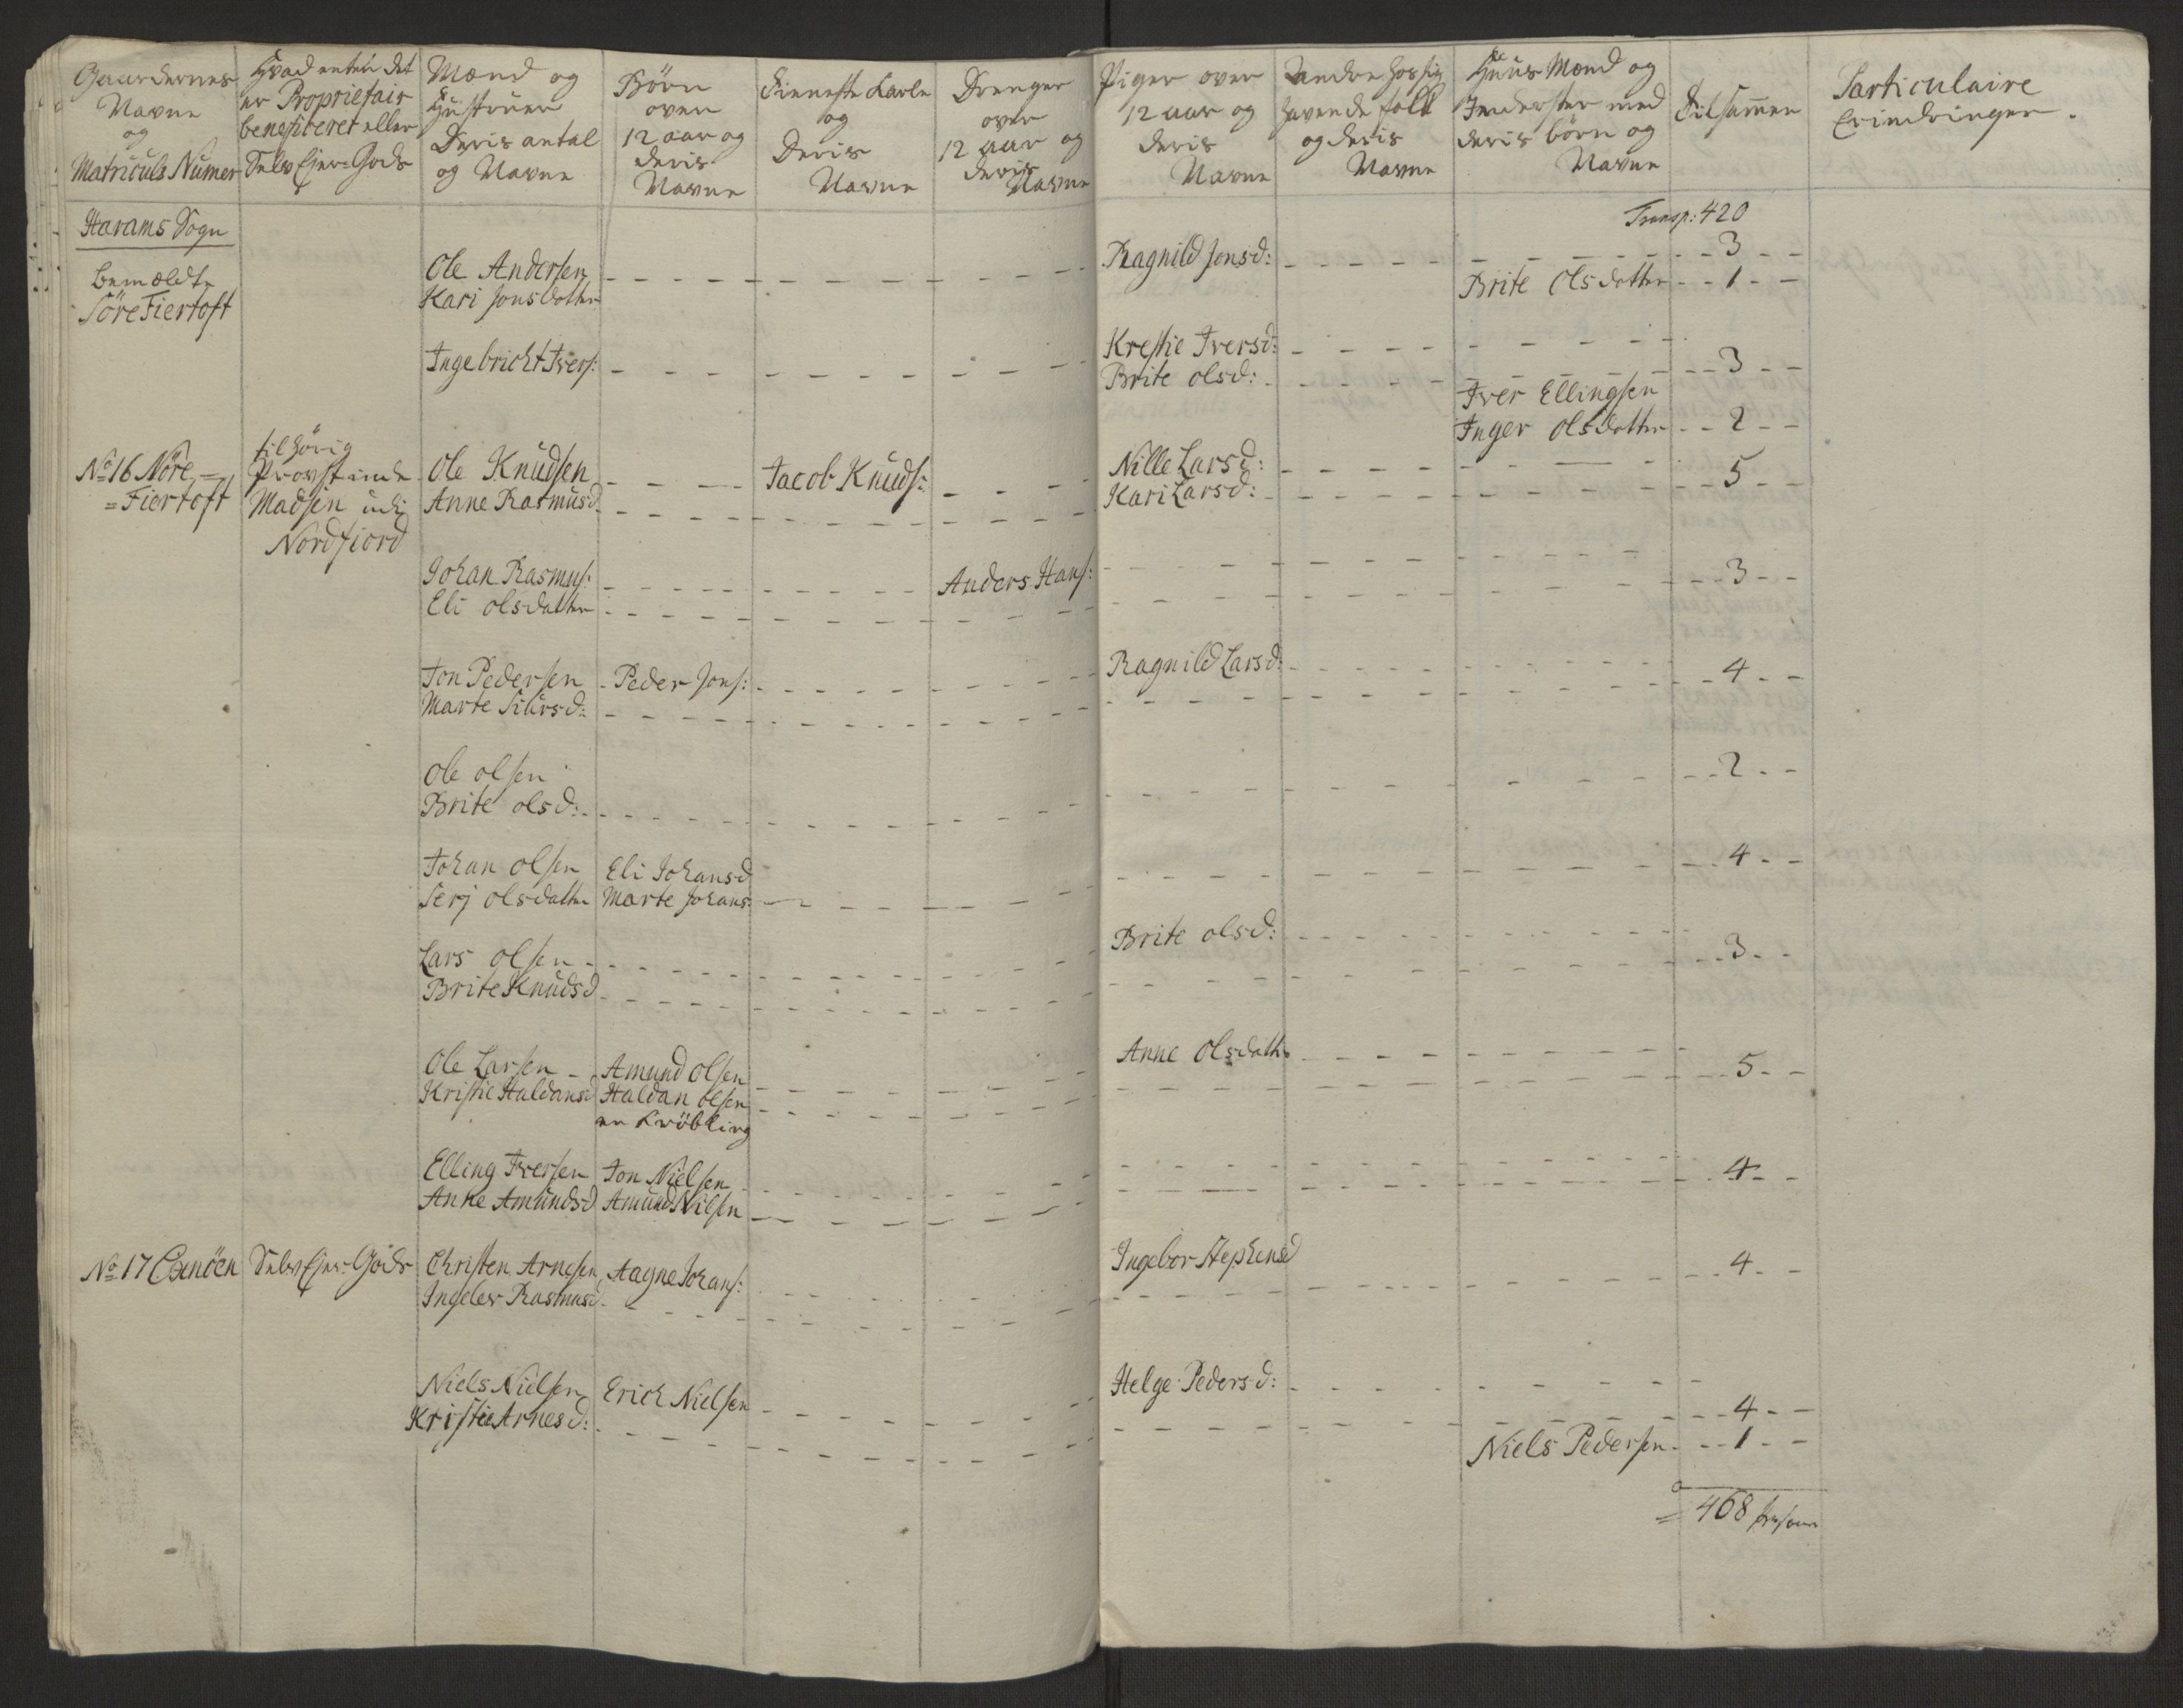 Gaardernes
Navne
og
Matriculs Numer
Hvad enten det
er Proprietair
beneficeret eller
Selv Ejer-Gods
Mænd og
Hustruer
Deris antal
og Navne
Börn
over
12 aar og
deris
Navne
Tieneste Karle
og
Deris
Navne
Drenger
over
12 aar og
deris
Navne
Piger over
12 aar og
deris
Navne
Andre hos sig
havende folk
og deris
Navne
Huus Mænd og
Inderster med
deris börn og
Navne
Tilsamen
Particulaire
Erindringer.
Harams Sogn
Transp: 420
bemældte
Söre Fiertoft
Ole Andersen
Kari Jonsdatter
Ragnild Jonsd:
3
Brite Olsdatter 1
Ingebricht Ivers:
Krestie Iversd:
Brite olsd:
3
Iver Ellingsen
Inger olsdatter 2
No 16 Nöre=
=Fiertoft
tilhörig
Provstinde
Madsen udj
Nordfiord
Ole Knudsen
Anne Rasmusd
Jacob Knuds:
Nille Larsd:
Kari Larsd:
5
Johan Rasmus:
Eli olsdatter
Anders Hans:
3
Jon Pedersen
Marte Siursd:
Peder Jons:
Ragnild Larsd:
4
Ole olsen
Brite olsd:
2
Johan olsen
Serj olsdatter
Eli Johansd
Marte Johans:
4
Lars olsen
Brite Knudsd
Brite olsd:
3
Ole Larsen
Kristie Haldansd
Amund olsen
Haldan olsen
en Kröbling
Anne Olsdatter
5
Elling Iversen
Anne Amundsd
Jon Nielsen
Amund Nilsen
4
No 17 Exnöen
Selv Ejer-Gods
Christen Arnesen
Ingeler Rasmusd
Aagne Johans:
Ingebor Stephensd
4
Niels Nielsen
Kristie Arnesd:
Erich Nielsen
Helge Pedersd:
4
Niels Pedersen 1
= 468 Personer